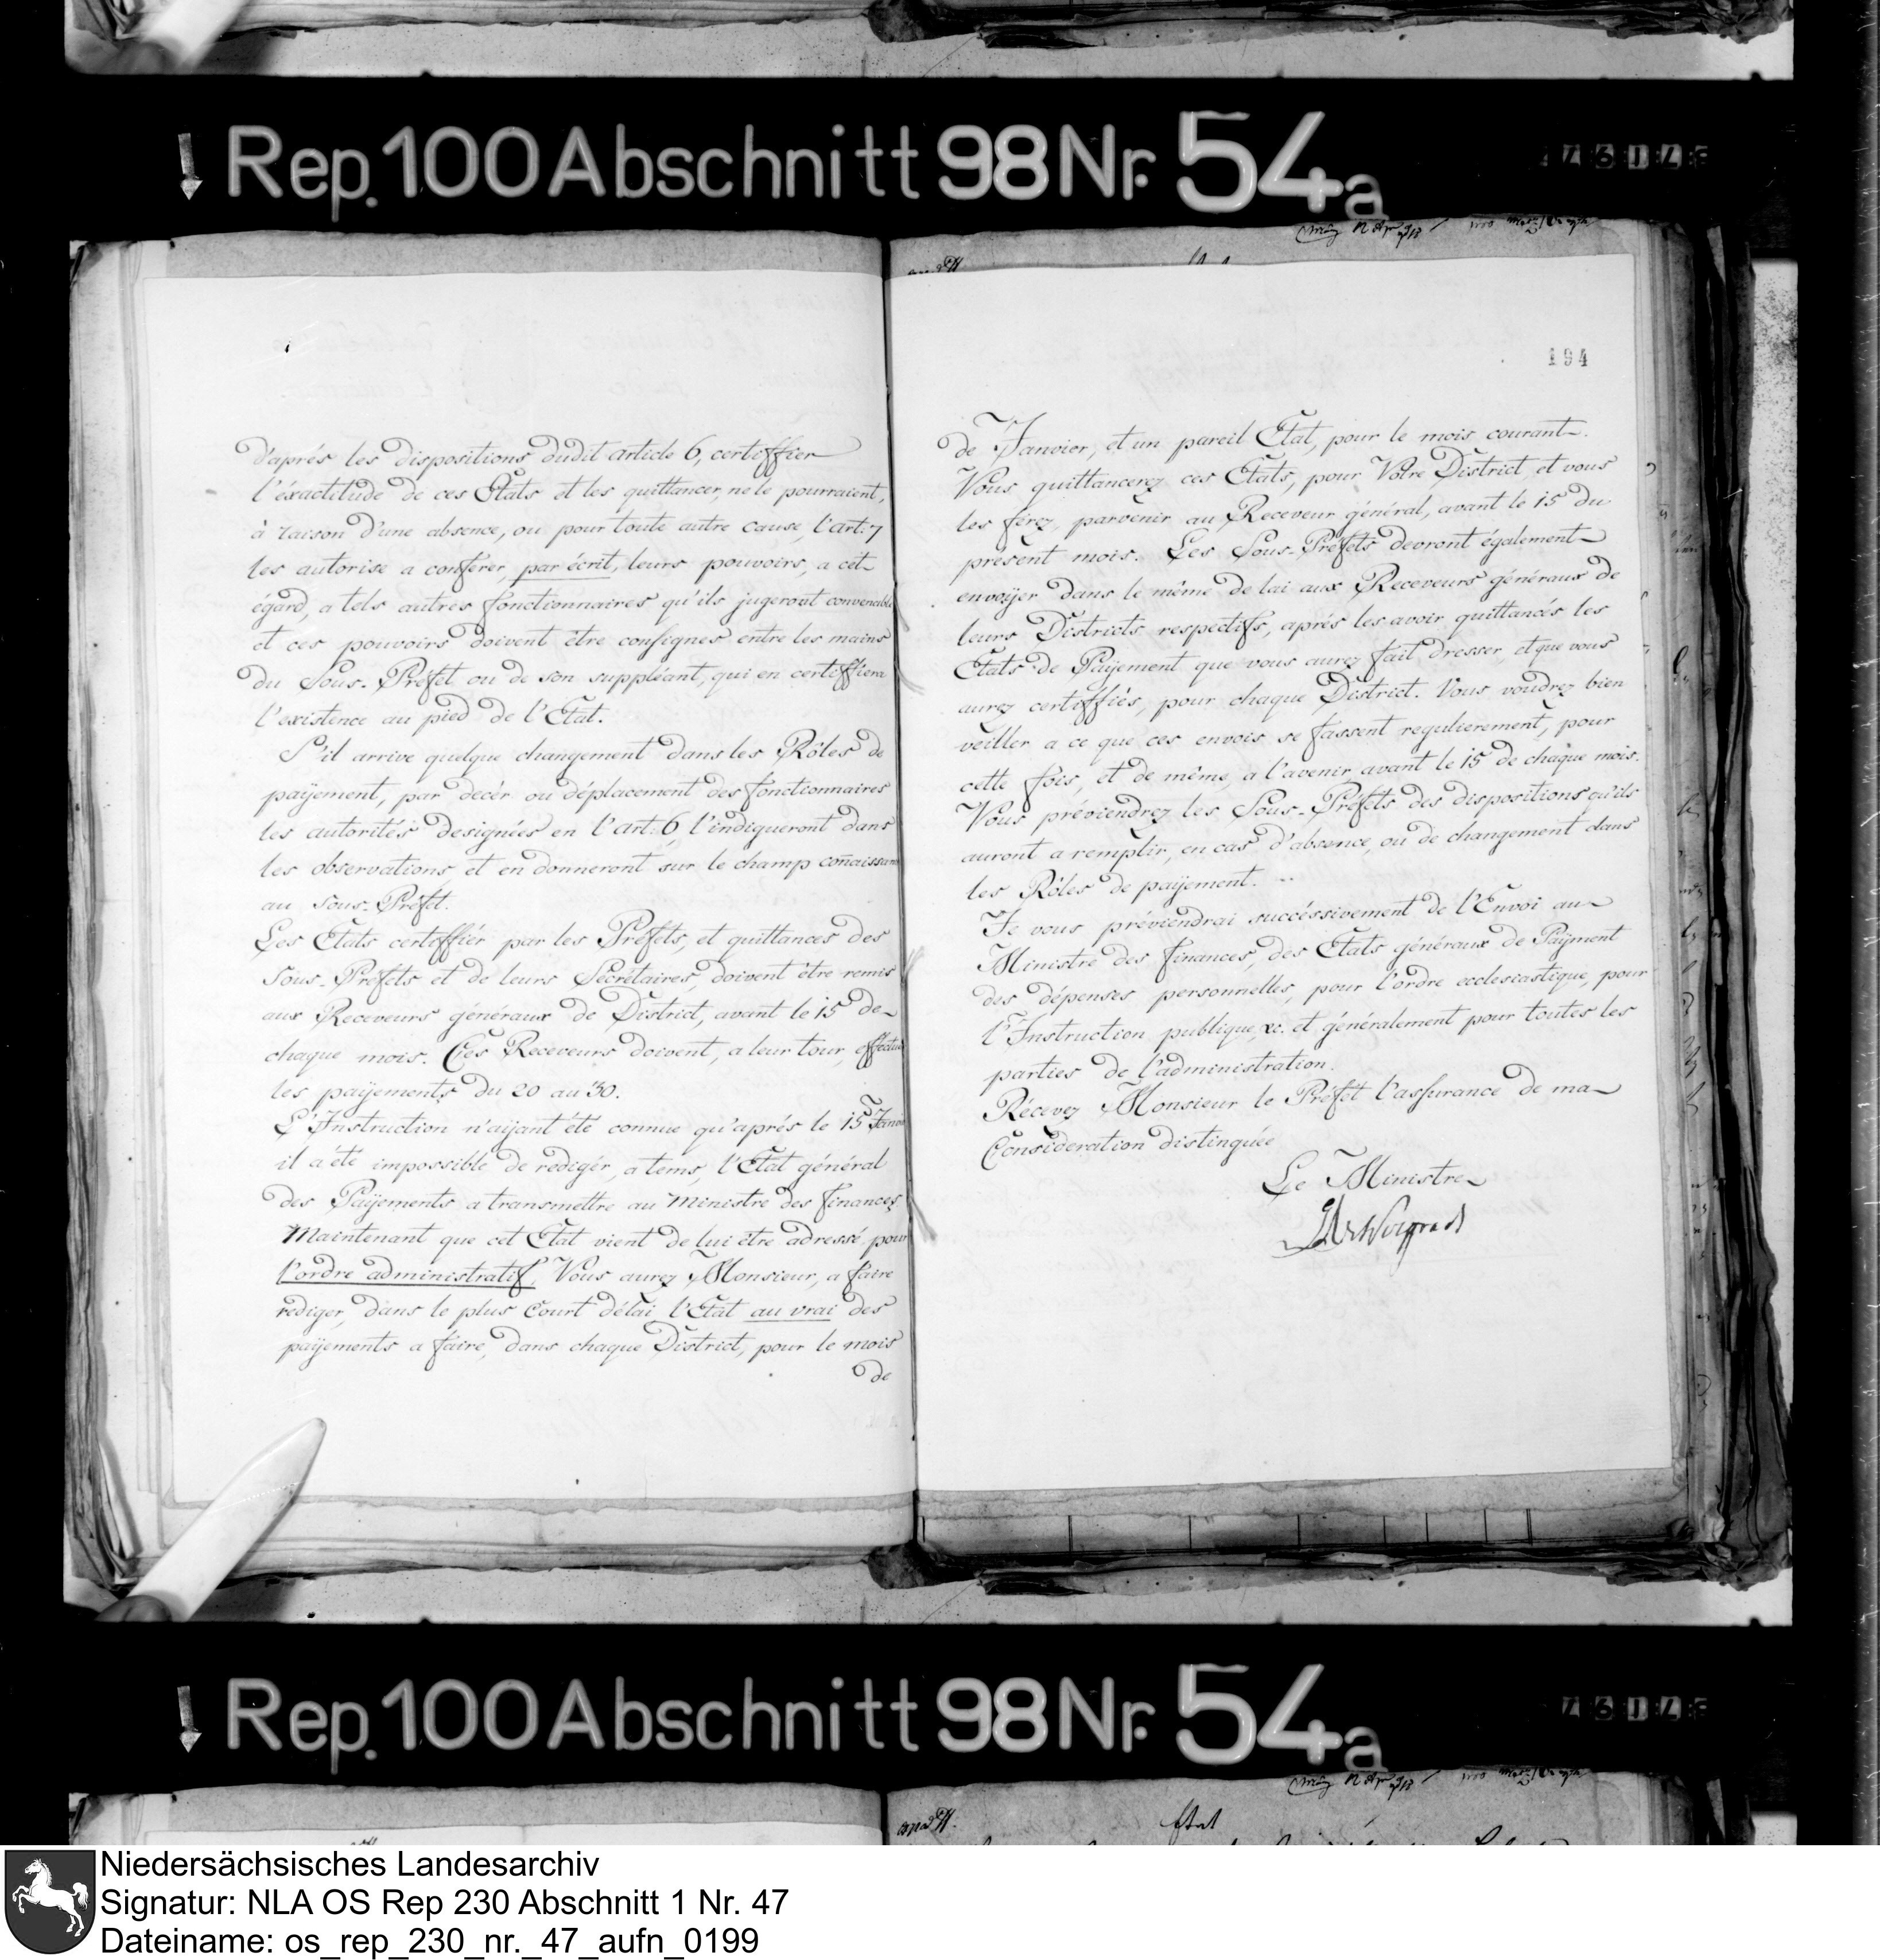 Rep. 100 Abschnitt 98 Nr. 54a
194
d'aprés les dispositions dudit article 6, certiffier
l'éxactitude de ces Etats et les quittancer, ne le pourraient,
à raison d'une absence, ou pour toute autre cause, l'art: 7
les autorise a conferer, par écrit, leurs pouvoirs, a cet
égard, a tels autres fonctionnaires qu'ils jugeront convenable
et ces pouvoirs doivent être consignes entre les mains
du Sous-Préfet ou de son suppléant, qui en certiffiera
l'existence au pied de l'Etat.
S'il arrive quelque changement dans les Rôles de
payement, par decér ou déplacement des fonctionnaires
les autorités designées en l'art: 6 l'indiqueront dans
les observations et en donneront sur le champ connaissance
au Sous-Préfet.
Les Etats certiffiér par les Préfets, et quittances des
Sous-Préfets et de leurs Secrétaires, doivent être remis
aux Receveurs généraux de District, avant le 15 de
chaque mois. Ces Receveurs doivent, a leur tour, effectuer
les payements du 20 au 30.
L'Instruction n'ayant été connue qu'aprés le 15 Janv
il a été impossible de redigér, a tems, l'Etat général
des Payements a transmettre au Ministre des finances
Maintenant que cet Etat vient de lui être adressé pour
l'ordre administratif, Vous aurez Monsieur, a faire
rediger, dans le plus Court délai l'Etat au vrai des
payements a faire, dans chaque District, pour le mois
de
de Janvier, et un pareil Etat, pour le mois courant.
Vous quittancerez ces Etats, pour Votre District, et vous
les ferez, parvenir au Receveur général, avant le 15 du
présent mois. Les Sous-Préfets devront également
envoyer dans le même de lai aux Receveurs généraux de
leurs Districts respectifs, aprés les avoir quittancés les
Etats de Payement que vous aurez fait dresser, et que vous
aurez certiffiés, pour chaque District. Vous voudrez bien
veiller a ce que ces envois se fassent regulierement, pour
cette fois, et de même, a l'avenir, avant le 15 de chaque mois.
Vous préviendrez les Sous-Préfets des dispositions qu'ils
auront a remplir, en cas d'absence, ou de changement dans
les Rôles de payement.
Je vous préviendrai succéssivement de l'Envoi au
Ministre des finances, des Etats généraux de Payment
des dépenses personnelles, pour l'ordre ecclesiastique, pour
l'Instruction publique, &c. et généralement pour toutes les
parties de l'administration.
Récevez Monsieur le Préfét l'assurance de ma
Consideration distinguée
Le Ministre
Rep. 100 Abschnitt 98 Nr. 54a
Niedersächsisches Landesarchiv
Signatur: NLA OS Rep 230 Abschnitt 1 Nr. 47
Dateiname: os_rep_230_nr._47_aufn_0199